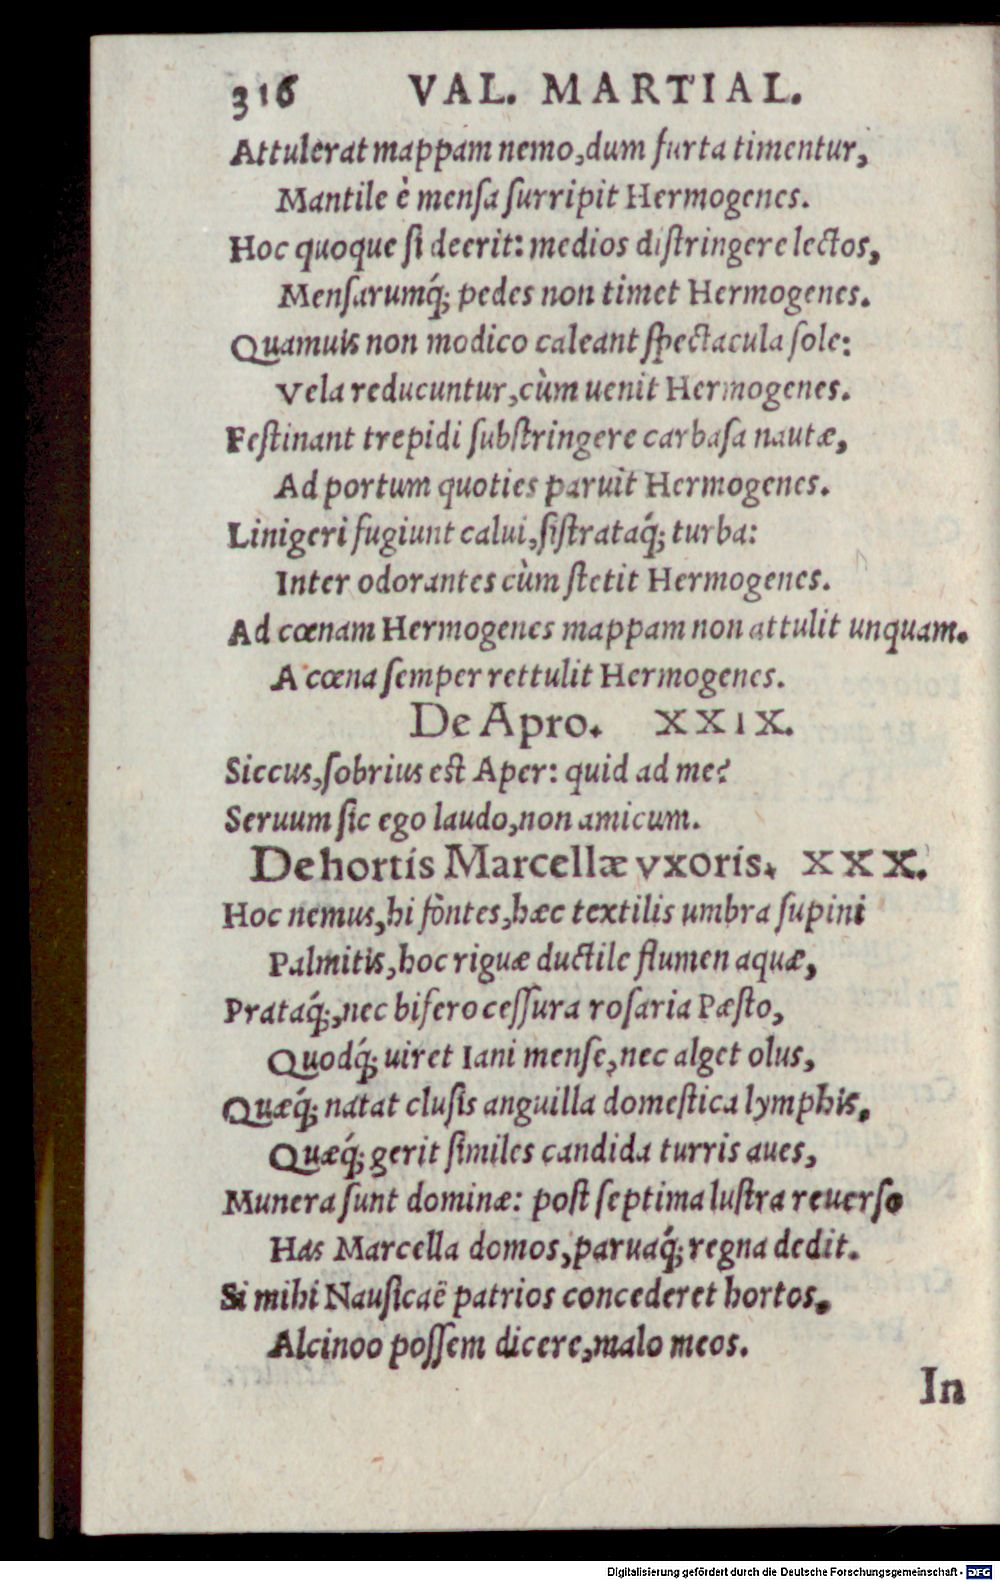 316 VAL. MARTIAL.
Attulerat mappam nemo, dum furta timentur,
Mantile è mensa surripit Hermogenes.
Hoc quoque si deerit: medios distringere lectos,
Mensarumq́; pedes non timet Hermogenes.
Quamuis non modico caleant spectacula sole:
Vela reducuntur, cùm uenit Hermogenes.
Festinant trepidi substringere carbasa nautæ,
Ad portum quoties paruit Hermogenes.
Linigeri fugiunt calui, sistrataq́; turba:
Inter odorantes cùm stetit Hermogenes.
Ad cœnam Hermogenes mappam non attulit unquam.
A cœna semper rettulit Hermogenes.
De Apro. XXIX.
Siccus, sobrius est Aper: quid ad me?
Seruum sic ego laudo, non amicum.
De hortis Marcellæ vxoris. XXX.
Hoc nemus, hi fontes, hæc textilis umbra supini
Palmitis, hoc riguæ ductile flumen aquæ,
Prataq́;, nec bifero cessura rosaria Pæsto,
Quodq́; uiret Iani mense, nec alget olus,
Quæq́; natat clusis anguilla domestica lymphis.
Quæq́; gerit similes candida turris aues,
Munera sunt dominæ: post septima lustra reuerso
Has Marcella domos, paruaq́; regna dedit.
Si mihi Nausicaë patrios concederet hortos.
Alcinoo possem dicere, malo meos.
In
Digitalisierung gefördert durch die Deutsche Forschungsgemeinschaft - DFG